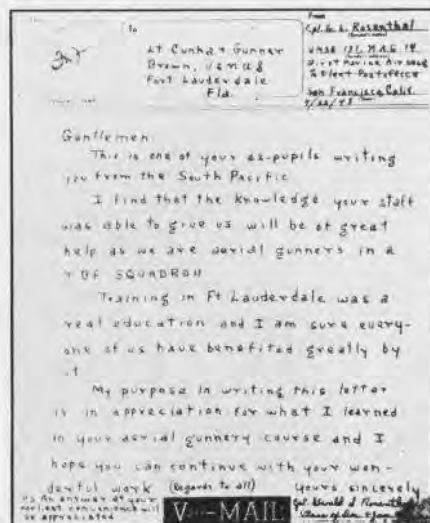 To
Lt Cunha & Gunner
Brown, USNAS
Fort Lauderdale
Fla.
From
Cpl. G. L. Rosenthal
VMSB 131, M.A.G. 14
First Marine Air Wing
℅ Fleet Postoffice
San Francisco Calif.
Gentlemen:
This is one of your ex-pupils writing
you from the South Pacific
I find that the knowledge your staff
was able to give us will be of great
help as we are aerial gunners in a
TBF SQUADRON
Training in Ft Lauderdale was a
real education and I am sure every-
one of us have benefited greatly by
it
My purpose in writing this letter
is in appreciation for what I learned
in your aerial gunnery course and I
hope you can continue with your won-
derful work (Regards to all) Yours sincerely
P.S. An answer at your
earliest convenience will
be appreciated
V···—MAIL
Cpl. Gerald L. Rosenthal